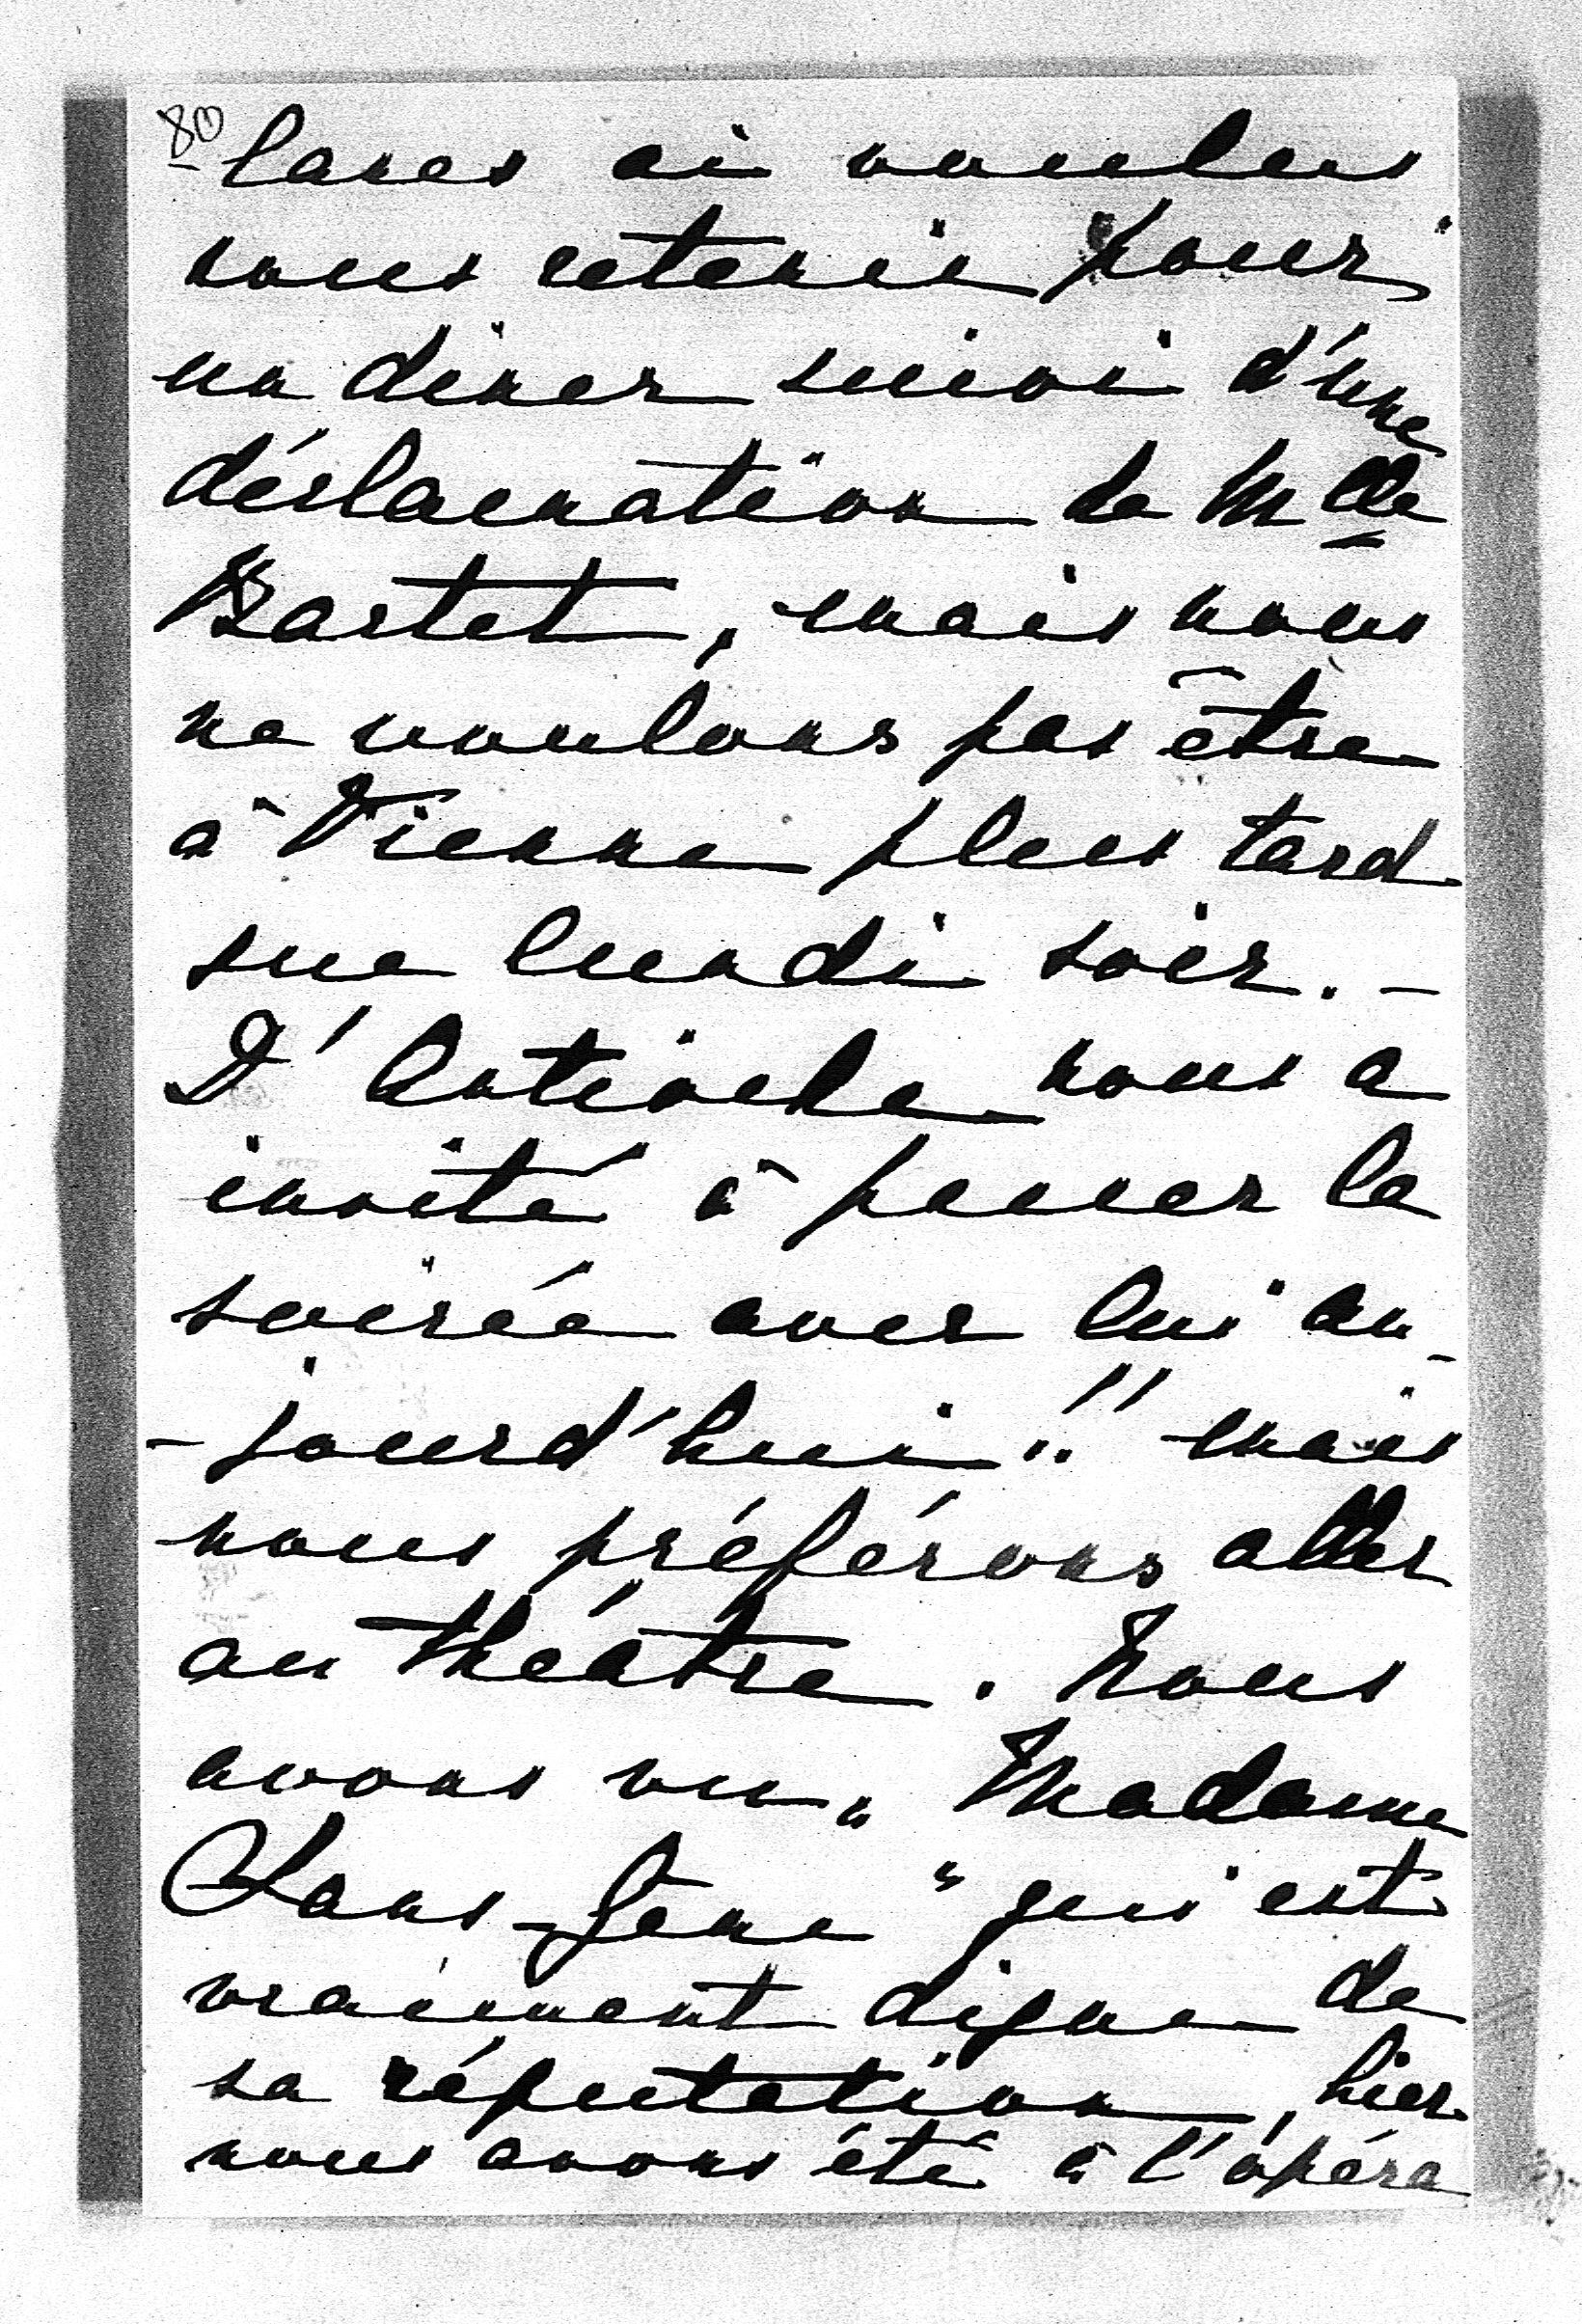 80
-lanes ai voulu
nous retenir pour
un diner suivi d'une
déclamation de Mlle
Bartet, mais nous
ne voulons pas être
à Vienne plus tard
que lundi soir. -
D'Antioche nous a
invité à passer la
soirée avec lui au-
-jourd'hui!! mais
nous préférons aller
au théâtre. Nous
avons vu „Madame
Sans-Gene" qui est
vraiment digne de
sa réputation, hier
nous avons été à l'opéra